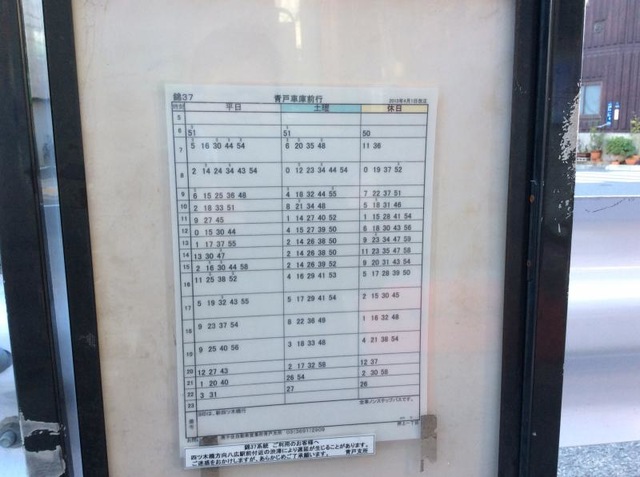 錦37 青戸車庫前行
時刻 平日 土曜 休日
5
6 51 51 50
7 5 16 30 44 54 6 20 35 48 11 36
8 2 14 24 34 43 54 0 12 23 34 44 54 0 19 37 52
9 6 15 25 36 48 4 18 32 44 55 7 22 37 51
10 2 18 33 51 8 21 34 48 5 18 31 46
11 9 27 45 1 14 27 40 52 1 15 28 41 54
12 0 15 30 44 4 15 27 39 50 6 18 30 43 56
13 1 17 37 55 2 14 26 38 50 9 23 34 47 59
14 13 30 47 2 14 26 38 50 11 23 35 47 58
15 2 16 30 44 58 2 14 26 39 52 9 20 31 43 54
16 11 25 38 52 4 16 29 41 53 5 17 28 39 50
17 5 19 32 43 55 5 17 29 41 54 2 15 30 45
18 9 23 37 54 8 22 36 49 1 16 32 48
19 9 25 40 56 3 18 33 48 4 21 38 54
20 12 27 43 2 17 32 58 12 37
21 1 20 40 26 54 2 30 58
22 3 31 27 26
23
全車ノンステップバスです。
錦37系統 ご利用のお客様へ
四ツ木橋方向八広駅前付近の渋滞により遅延が生じることがあります。
ご迷惑をおかけしますが、あらかじめご了承願います。 青戸支所